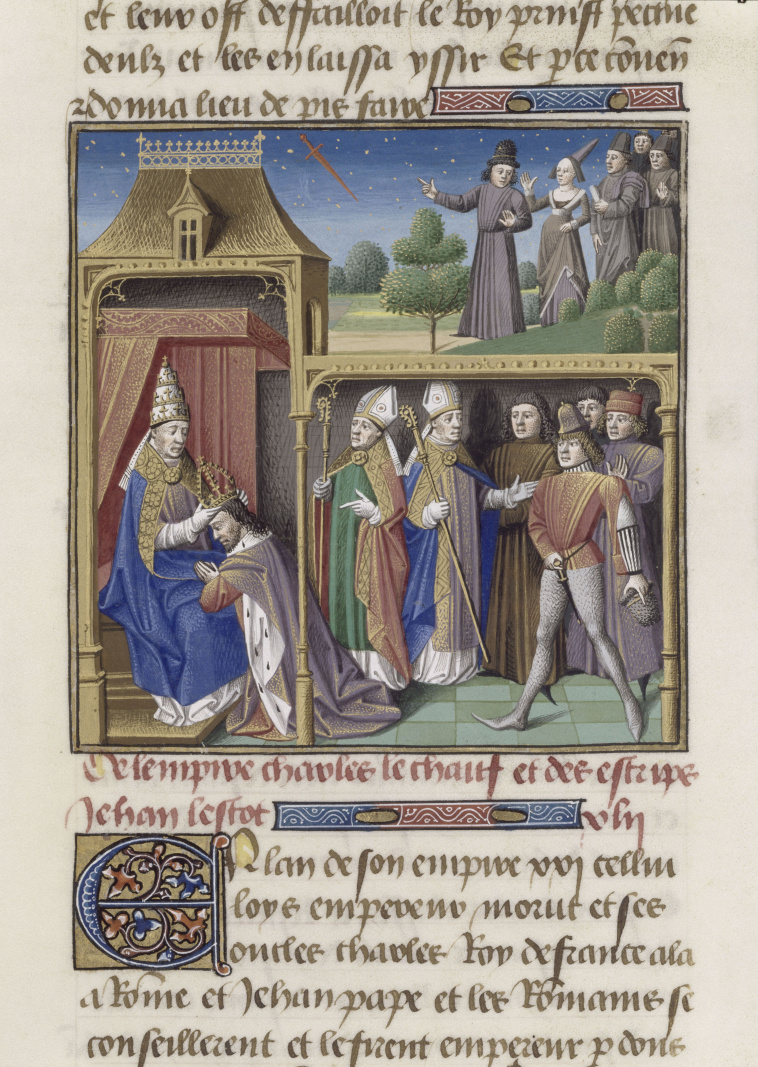 et leur ost deffailloit le Roy prinst pectne
deulz et les en laissa yssir Et p ce conuen
donna lieu de pis faire
De lempire charles le chauf et des escrips
Jehan lescot xlii
En lan de son empire xxj cellui
loys empereur morut et ses
oncles charles Roy de france ala
a Rome et Jehan pape et les Romains se
conseillerent et le firent empereur p dons